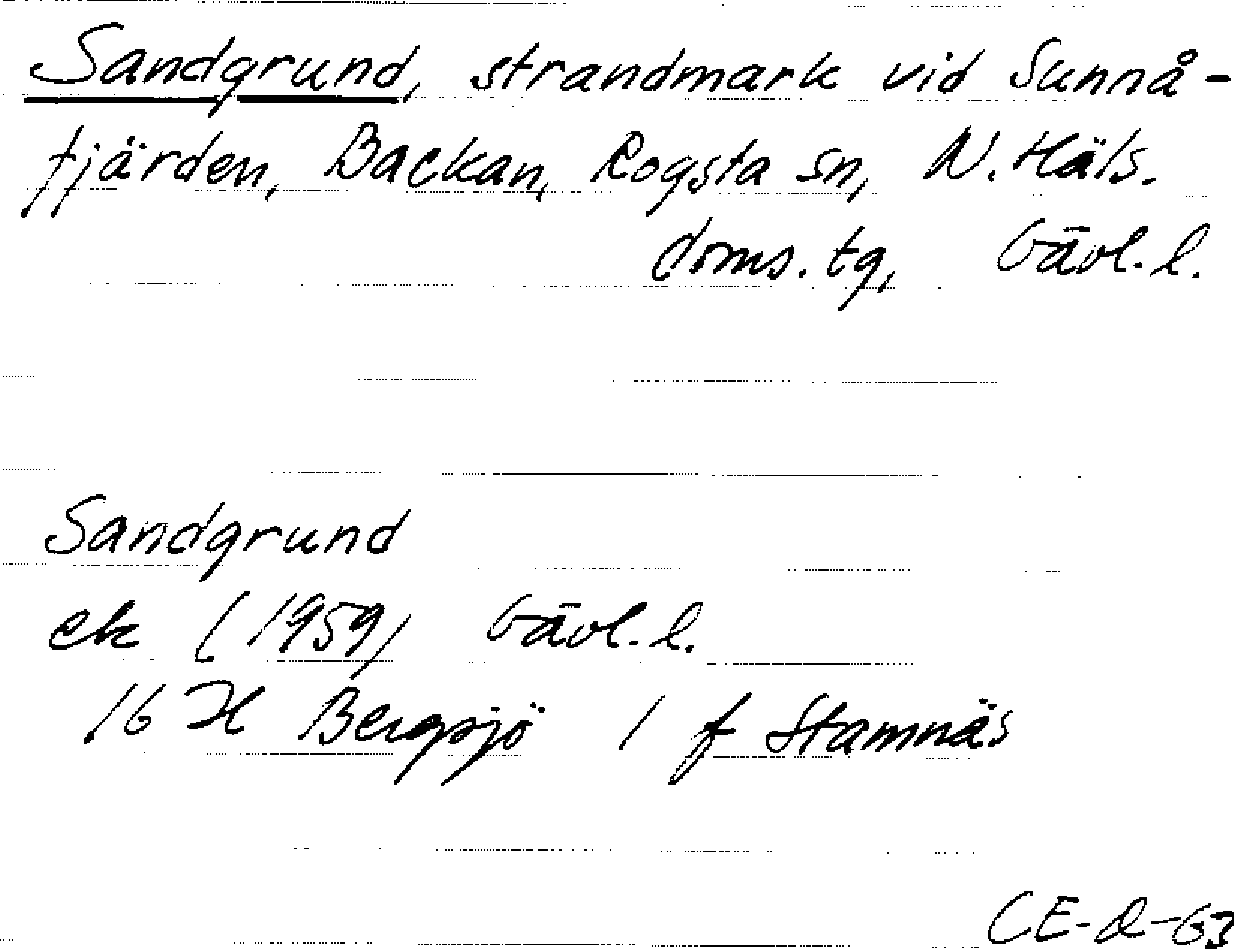 Sandgrund, strandmark vid Sunnå-
fjärden, Backan, Rogsta sn, N. Häls.
doms. tg, Gävl. l.
Sandgrund
ek (1959) Gävl. l.
16 H Bergsjö 1 f Stamnäs
CE-d-63